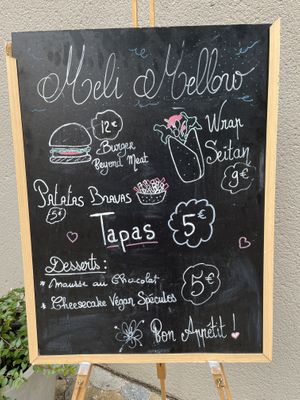 Meli Mellow
12€
Burger
Beyond Meat
Wrap
Seitan
9€
Patatas Bravas
5€
Tapas 5€
Desserts :
* Mousse au Chocolat
* Cheesecake Vegan Spéculos
5€
Bon Appétit !